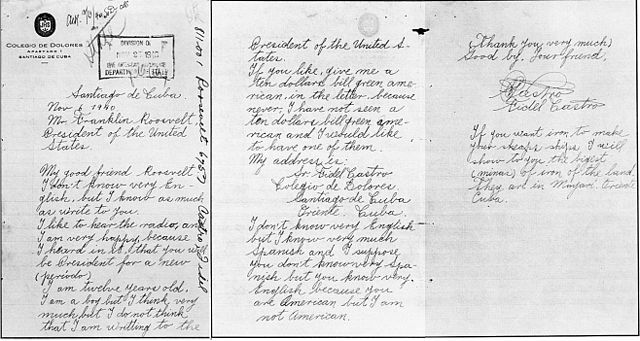 COLEGIO DE DOLORES
APARTADO 1
SANTIAGO DE CUBA
DIVISION O
DEPARTM STATE
Santiago de Cuba.
Nov 6 1940
Mr Franklin Roosvelt,
President of the United
States.
My good friend Roosvelt
I don't know very En-
glish, but I know as much
as write to you.
I like to hear the radio, and
I am very happy, because
I heard in it, that you will
be President for a new
(periodo)
I am twelve years old.
I am a boy but I think very
much but I do not think
that I am writting to the
811.001 Roosevelt 6967 Castro Fidel
President of the United S-
tates.
If you like, give me a
ten dollars bill green ame-
rican, in the letter, because
never, I have not seen a
ten dollars bill green ame-
rican and I would like
to have one of them.
My address is:
Sr Fidel Castro
Colegio de Dolores
Santiago de Cuba
Oriente. Cuba.
I don't know very English
but I know very much
Spanish and I suppose
you don't know very Spa-
nish but you know very
English because you
are American but I am
not American.
(Thank you very much)
Good by. Your friend,
Castro
Fidel Castro
If you want iron to make
your sheaps ships I will
show to you the bigest
(minas) of iron of the land.
They are in Mayari. Oriente
Cuba.